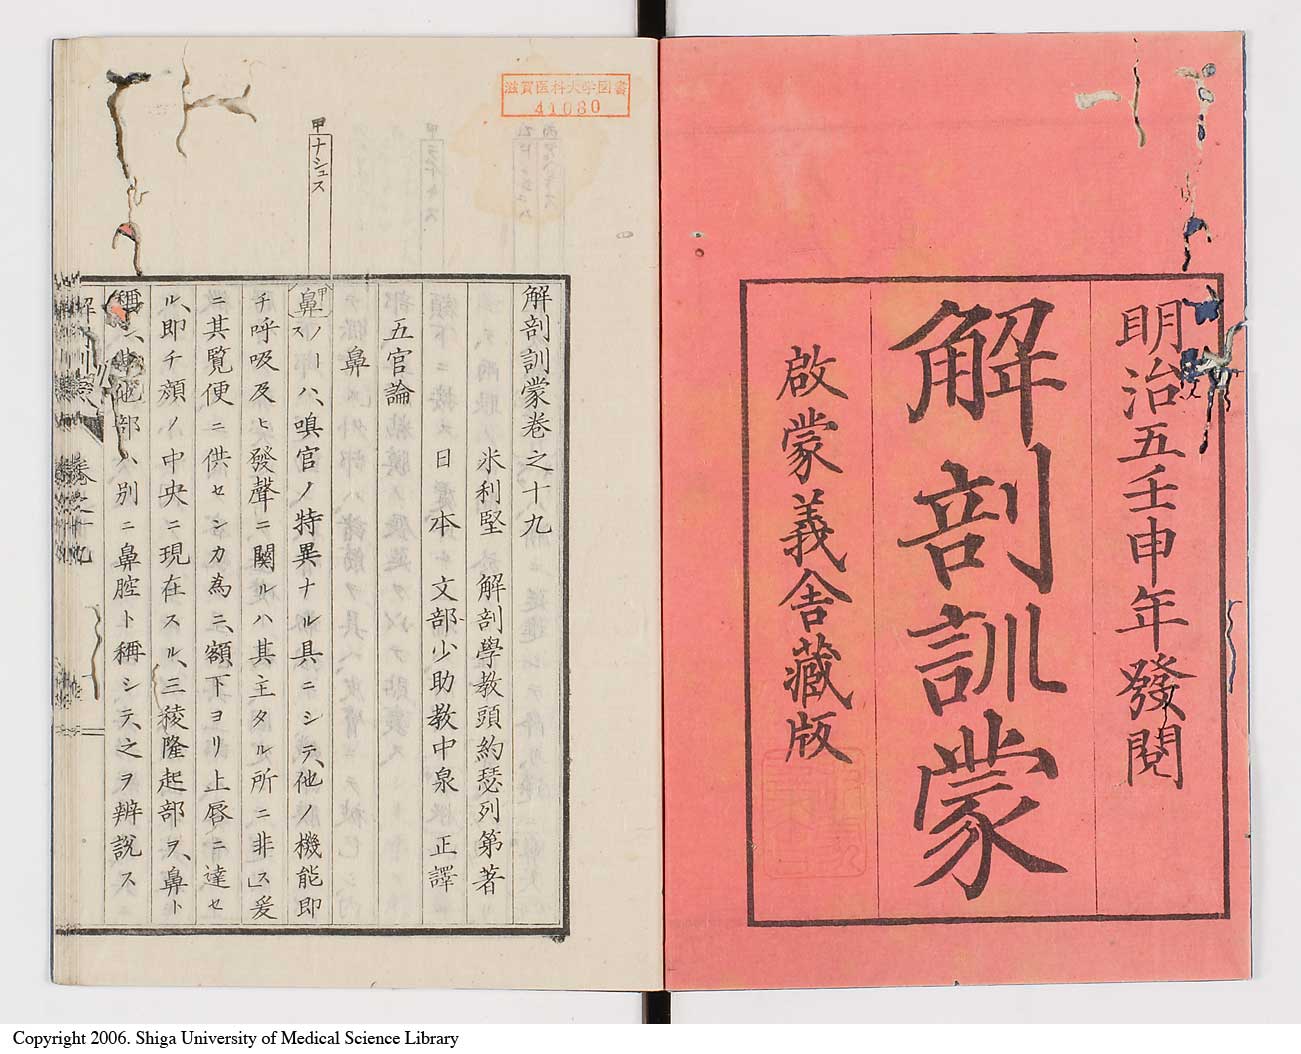 明治五壬申年發閱
解剖訓蒙
啟蒙義舍藏版
滋賀医科大学図書
41080
甲
ナシュス
解剖訓蒙卷之十九
米利堅 解剖學教頭約瑟列第著
日本 文部少助教中泉 正譯
五官論
鼻
鼻甲ノ一ハ、嗅官ノ特異ナル具ニシテ、他ノ機能即
チ呼吸及ヒ發聲ニ關ルハ其主タル所ニ非ス爰
ニ其覧便ニ供センカ為ニ、額下ヨリ上唇ニ達セ
ル、即チ顔ノ中央ニ現在スル、三稜隆起部ヲ、鼻ト
稱シ、其 部ハ別ニ鼻腔ト稱シテ、之ヲ辨説ス
Copyright 2006. Shiga University of Medical Science Library